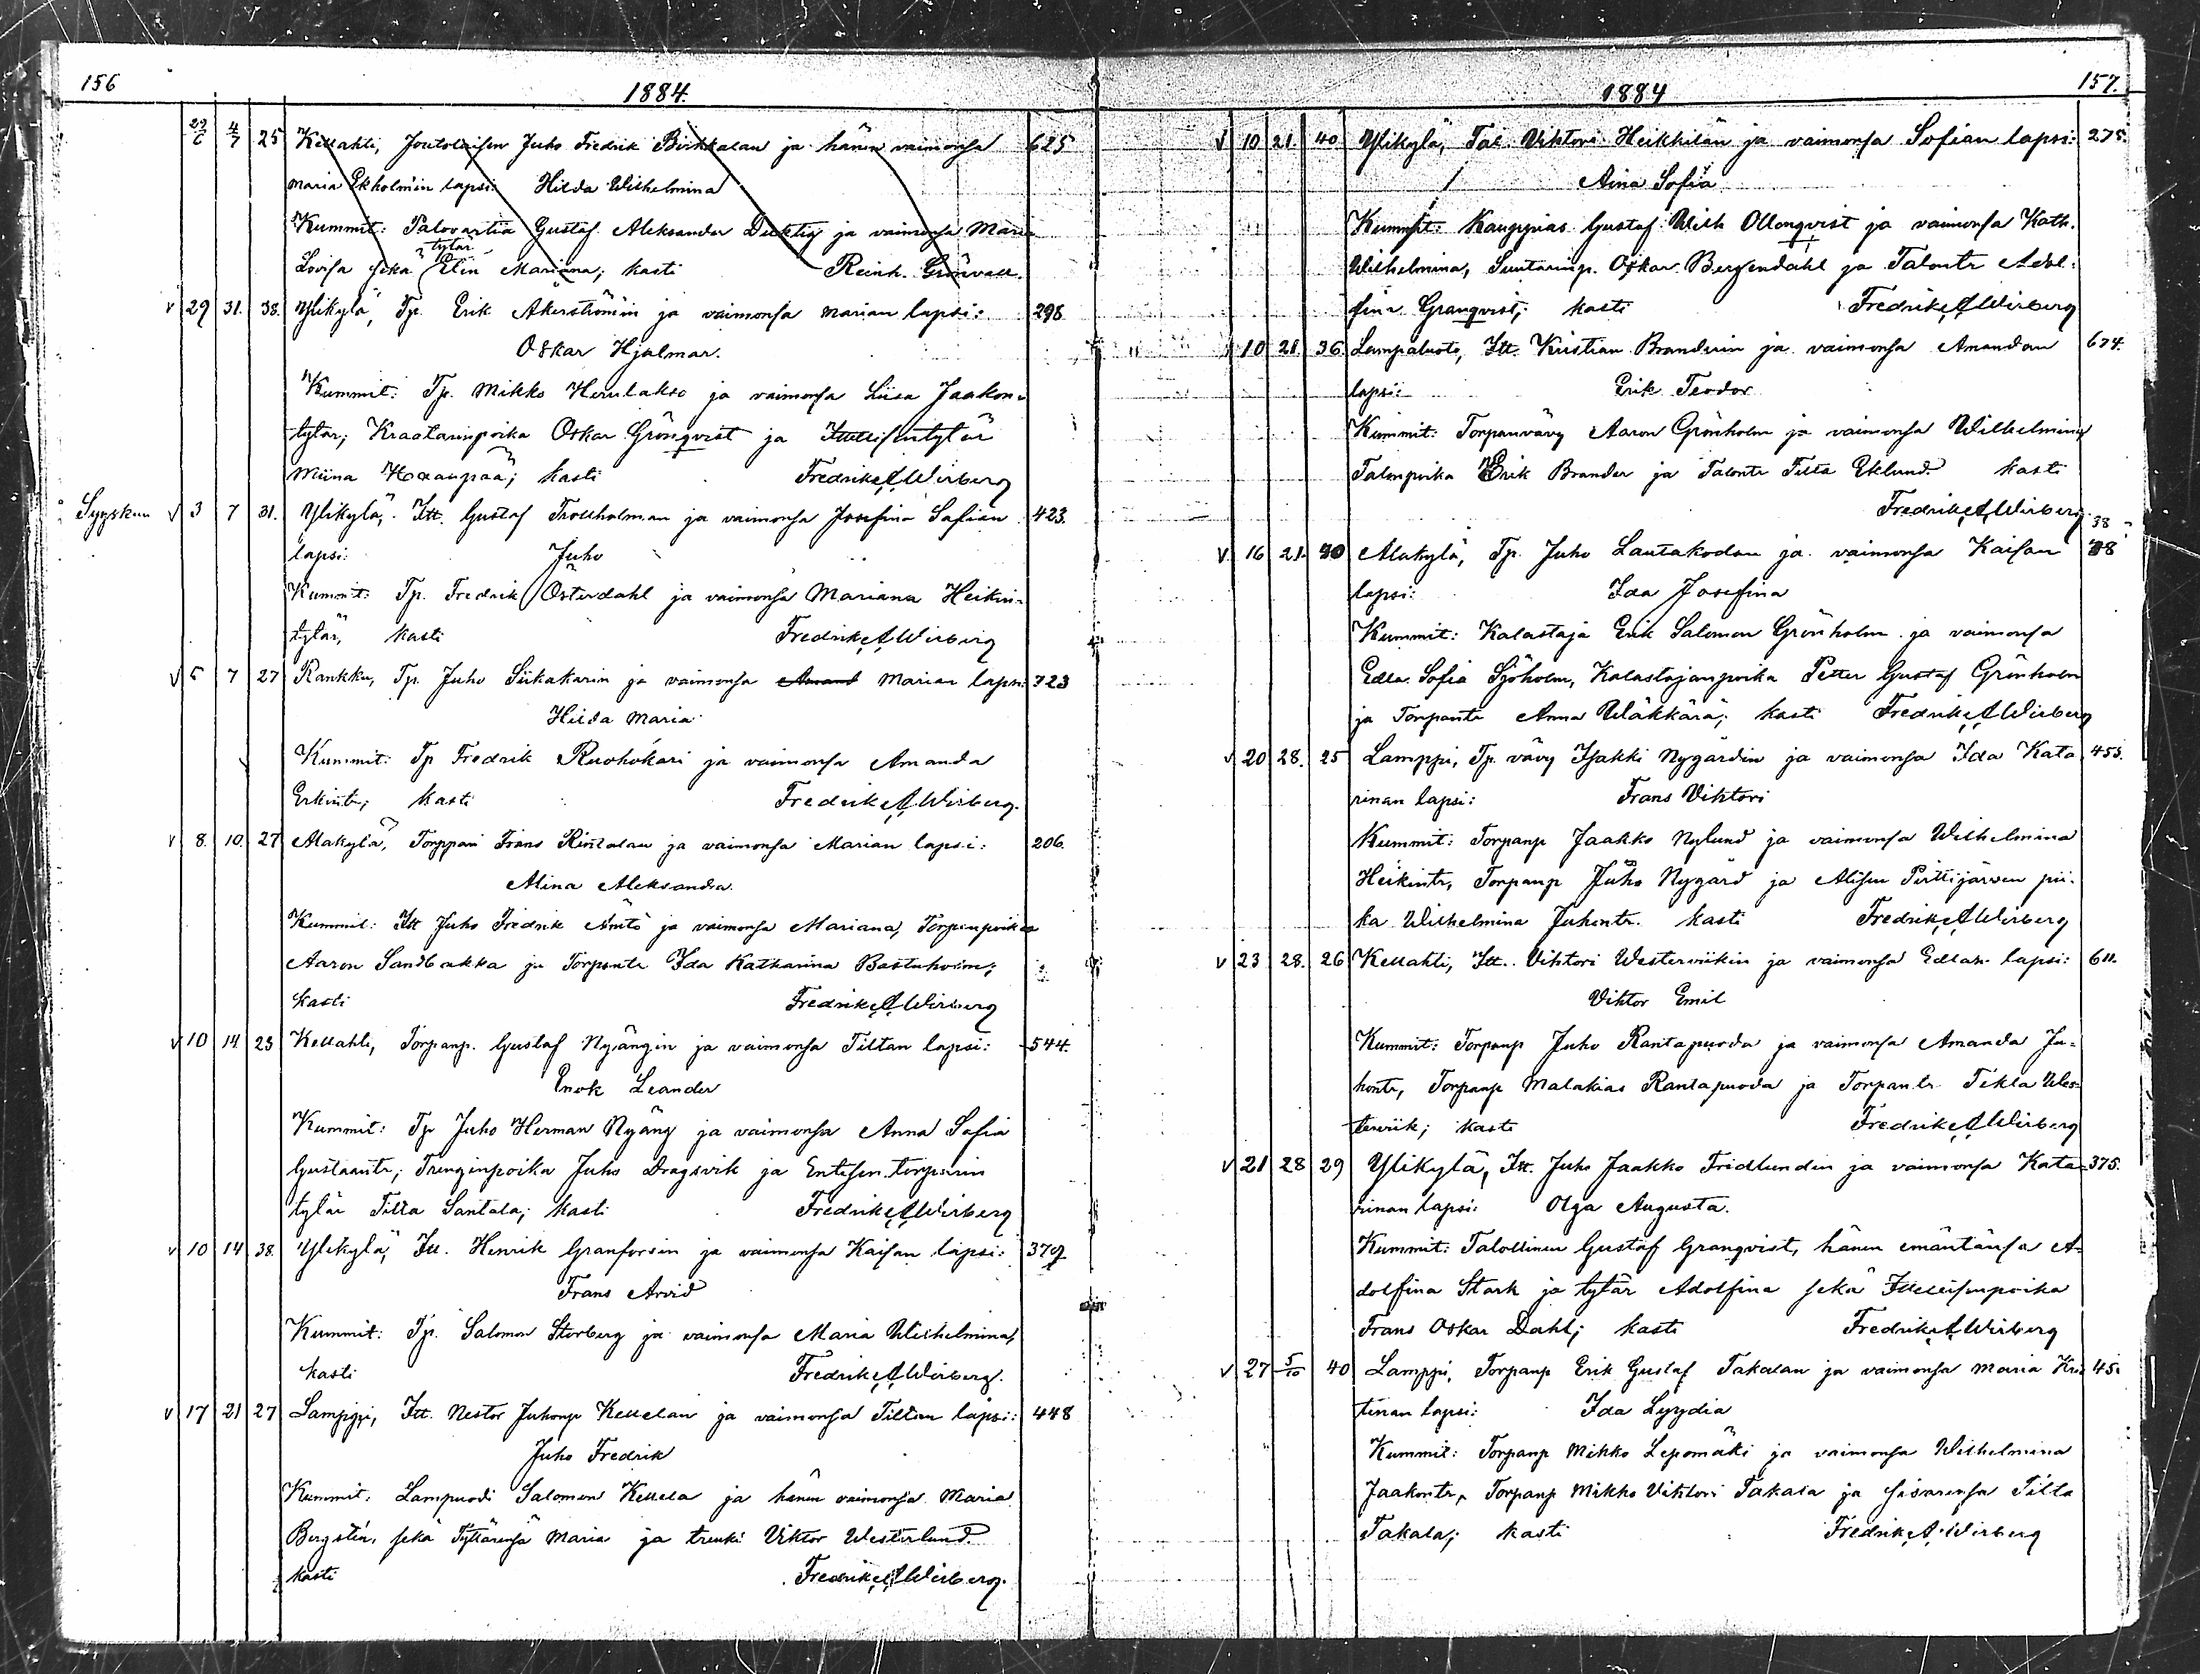 156
1884.
29/6 4/7 25 Kellahti, Juho Fredrik Birkkalan ja hänen vaimonsa 625
Maria Ekholmin lapsi: Hilda Wilhelmina
Kummit: Palovartia Gustaf Aleksander ja vaimonsa Maria
Lovisa sekä tytär Elin Mariana; kasti Reinh. Grönvall.
v 29 31. 38. Ylikylä, Tp. Erik Åkerströmin ja vaimonsa Marian lapsi: 298
Oskar Hjalmar.
Kummit: Tp. Mikko Herulakso ja vaimonsa Liisa Jaakon-
tytär; Kraatarinpoika Oskar Grönqvist ja Itsellisentytär
Miina Haanpää; kasti Fredrik A Wirberg
Syyskuu v 3 7 31. Ylikylä, Itt. Gustaf Trollholman ja vaimonsa Josefina Sofian 423.
lapsi: Juho
Kummit: Tp. Fredrik Österdahl ja vaimonsa Mariana Heikin-
tytär, kasti Fredrik A Wirberg
v 5 7 27 Rankku, Tp. Juho Siikakarin ja vaimonsa Amand Marian lapsi: 723
Hilda Maria
Kummit: Tp Fredrik Ruohokari ja vaimonsa Amanda
Erkintr; kasti Fredrik A Wirberg.
v 8. 10. 27 Alakylä, Torppari Frans Rintalan ja vaimonsa Marian lapsi: 206.
Alina Aleksandra.
Kummit: Itt Juho Fredrik Amtö ja vaimonsa Mariana, Torpanpoika
Aaron Sandbakka ja Torpantr Ida Katharina Bastuholm;
kasti Fredrik A Wirberg
v 10 14 23 Kellahti, Torpanp. Gustaf Nyängin ja vaimonsa Tiltan lapsi: 544.
Enok Leander
Kummit: Tp Juho Herman Nyäng ja vaimonsa Anna Sofia
Gustaantr; Trenginpoika Juho Dragsvik ja Entisen torparin
tytär Tilta Santala; kasti Fredrik A Wirberg
v 10 14 38. Ylikylä, Itt. Henrik Granforsin ja vaimonsa Kaisan lapsi: 379
Frans Arvid
Kummit: Tp. Salomon Storberg ja vaimonsa Maria Wilhelmina,
kasti Fredrik A Wirberg.
v 17 21 27 Lamppi, Itt. Nestor Juhonp Kellelan ja vaimonsa Tiltan lapsi: 448
Juho Fredrik
Kummit: Lampuodi Salomon Kellela ja hänen vaimonsa Maria
Bergstén, sekä Tyttärensä Maria ja trenki Viktor Westerlund.
kasti Fredrik A Wirberg.
1884
157.
v 10 21. 40 Ylikylä, Tal. Viktori Heikkilän ja vaimonsa Sofian lapsi: 275.
Aina Sofia
Kummit: Kauppias Gustaf Wilh Ollonqvist ja vaimonsa Kath.
Wilhelmina, Suutarinp. Oskar Bergendahl ja Talontr Adol-
fina Granqvist; kasti Fredrik A Wirberg
10 21. 36. Lampaluoto, Itt. Kristian Branderin ja vaimonsa Amandan 674.
lapsi: Erik Teodor
Kummit: Torpanvävy Aaron Grönholm ja vaimonsa Wilhelmina
Talonpoika Erik Brander ja Talontr Tilta Eklund. kasti
Fredrik A Wirberg
v. 16 21. 30 Alakylä, Tp. Juho Lautakodan ja vaimonsa Kaisan 38
lapsi: Ida Josefina
Kummit: Kalastaja Erik Salomon Grönholm ja vaimonsa
Edla Sofia Sjöholm, Kalastajanpoika Petter Gustaf Grönholm
ja Torpantr Anna Wäkkärä; kasti Fredrik A Wirberg
v 20 28. 25 Lamppi, Tp. vävy Isakki Nygårdin ja vaimonsa Ida Kata 453.
rinan lapsi: Frans Viktori
Kummit: Torpanp Jaakko Nylund ja vaimonsa Wilhelmina
Heikintr, Torpanp Juho Nygård ja Alisen Pirttijärven pii-
ka Wilhelmina Juhontr. kasti Fredrik A Wirberg
v 23 28. 26 Kellahti, Itt. Viktori Westerwiikin ja vaimonsa Edlan lapsi: 611.
Viktor Emil
Kummit: Torpanp Juho Rantapuoda ja vaimonsa Amanda Ju-
hontr, Torpanp Malakias Rantapuoda ja Torpantr Tekla Wes-
terwiik; kasti Fredrik A Wirberg
v 21 28 29 Ylikylä, Itt. Juho Jaakko Fridlundin ja vaimonsa Kata- 375.
rinan lapsi: Olga Augusta.
Kummit: Talollinen Gustaf Granqvist, hänen emäntänsä A-
dolfina Stark ja tytär Adolfina sekä Itsellisenpoika
Frans Oskar Dahl; kasti Fredrik A Wirberg
v 27 5/10 40 Lamppi, Torpanp Erik Gustaf Takalan ja vaimonsa Maria Kris 45.
tinan lapsi: Ida Lyydia
Kummit: Torpanp Mikko Lepomäki ja vaimonsa Wilhelmina
Jaakontr, Torpanp Mikko Viktori Takala ja sisarensa Tilta
Takala; kasti Fredrik A Wirberg